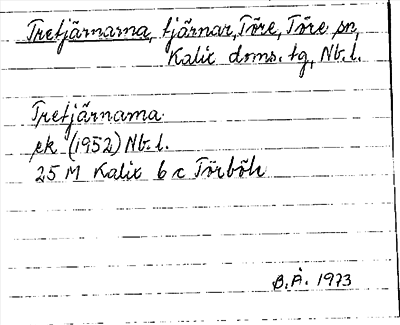 Tretjärnarna, tjärnar, Töre, Töre sn,
Kalix doms. tg, Nb. l.
Tretjärnarna
ek (1952) Nb. l.
25 M Kalix 6 c Törböle
B.Å. 1973